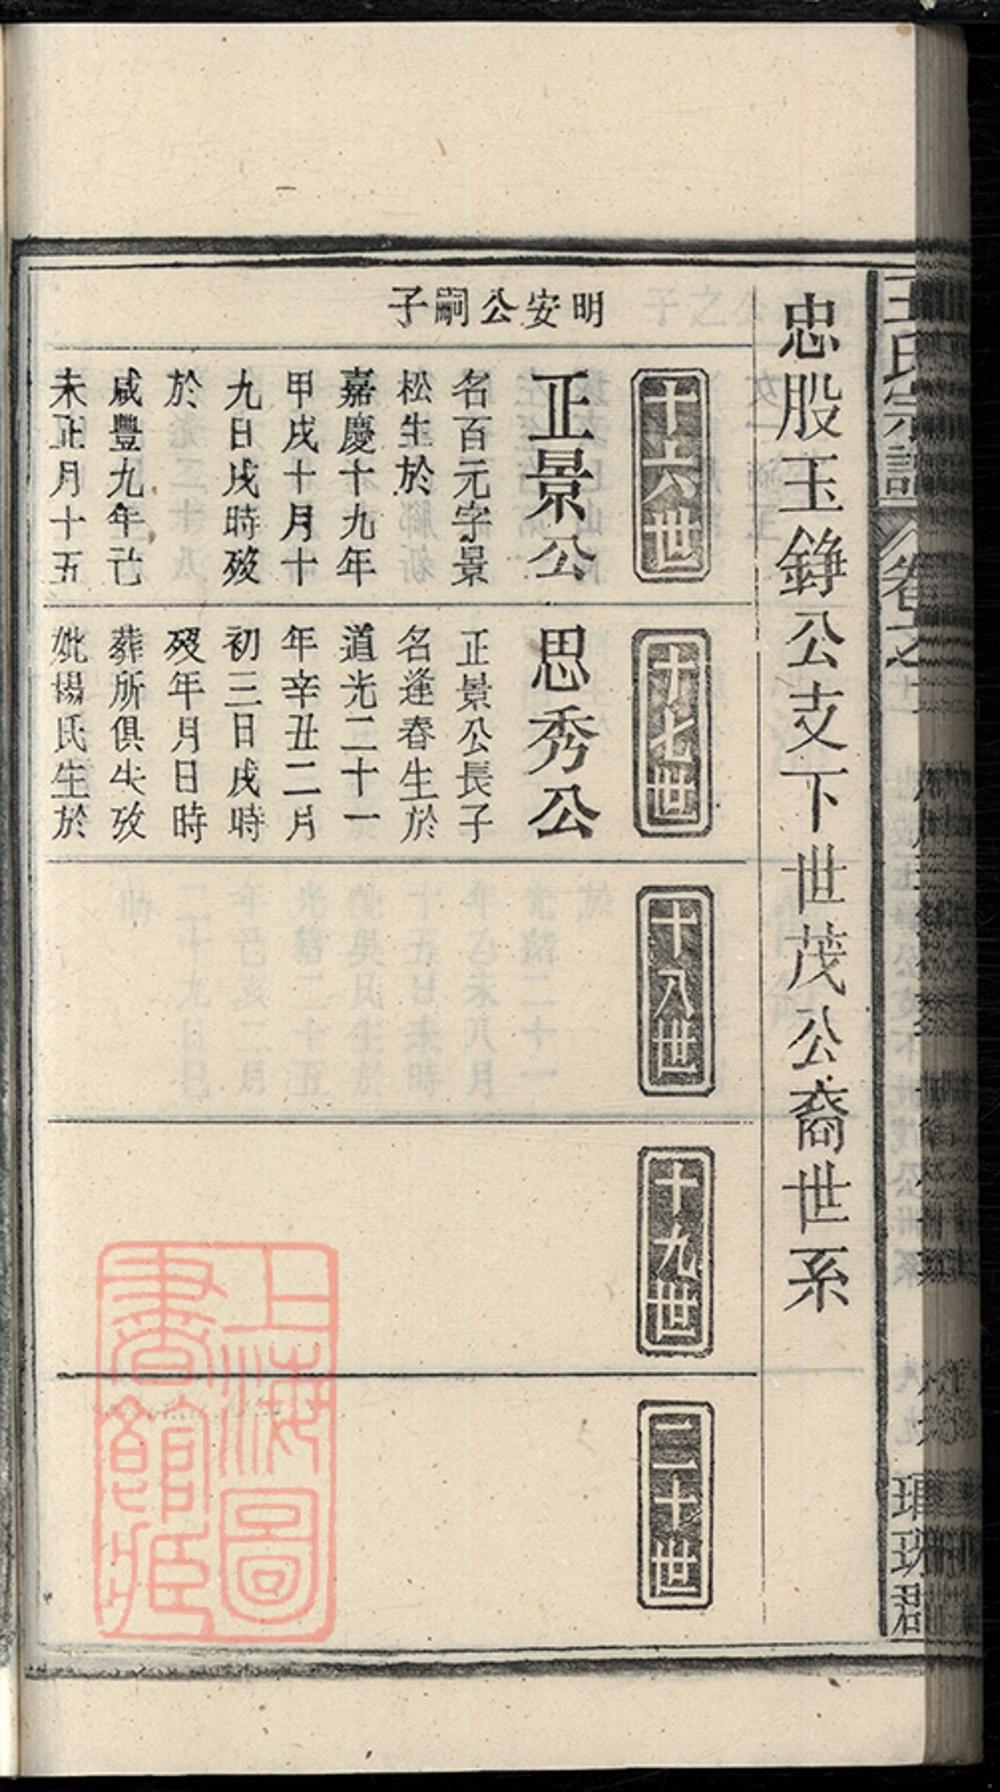 王氏宗譜
卷之
忠股玉錚公支下世茂公裔世系
十六世
十七世
十八世
十九世
二十世
明安公嗣子
正景公
名百元字景
松生於
嘉慶十九年
甲戌十月十
九日戌時歿
於
咸豐九年己
未正月十五
思秀公
正景公長子
名逢春生於
道光二十一
年辛丑二月
初三日戌時
歿年月日時
葬所俱失攷
妣楊氏生於
上海圖
書館藏